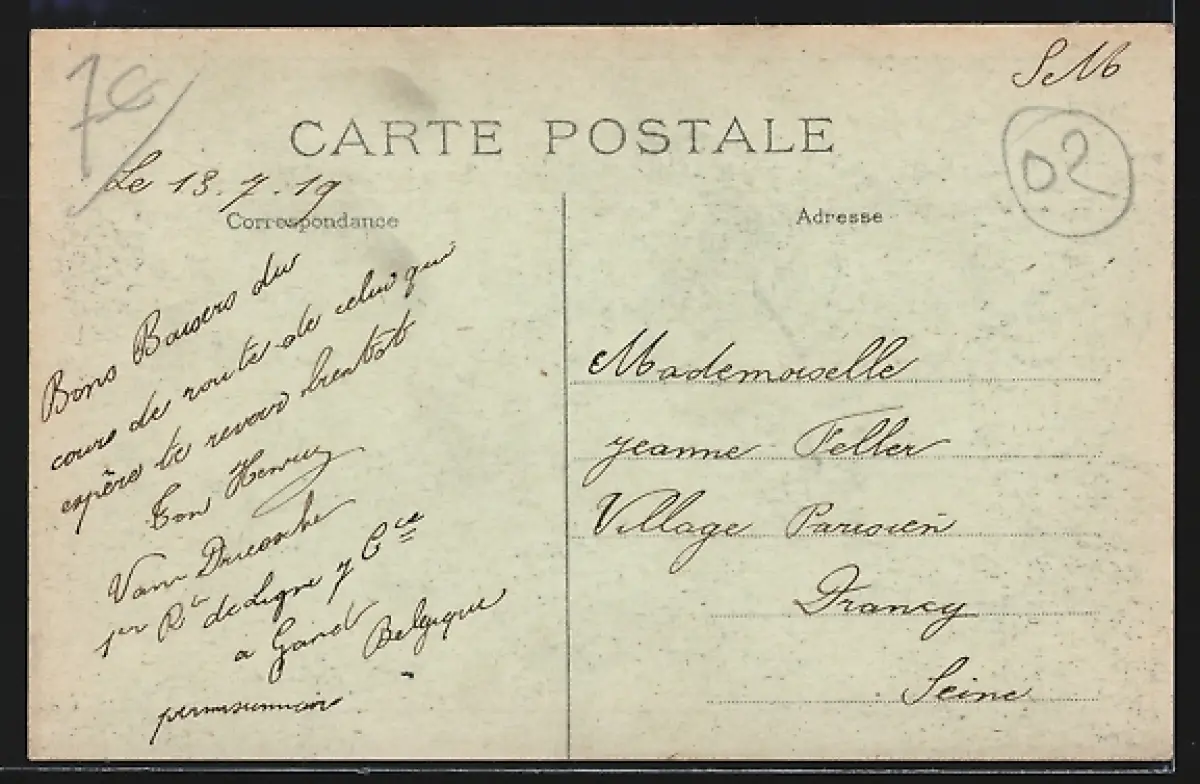 7€
SM
CARTE POSTALE
02
Le 13.7.19
Correspondance
Adresse
Bons Baisers du
cours de route de celui qui
espère te revoir bientot
Ton Henry
Vann
1er Rt de Ligne 7 Cie
a Gand Belgique
permissionnaire
Mademoiselle
Jeanne Feller
Village Parisien
Drancy
Seine